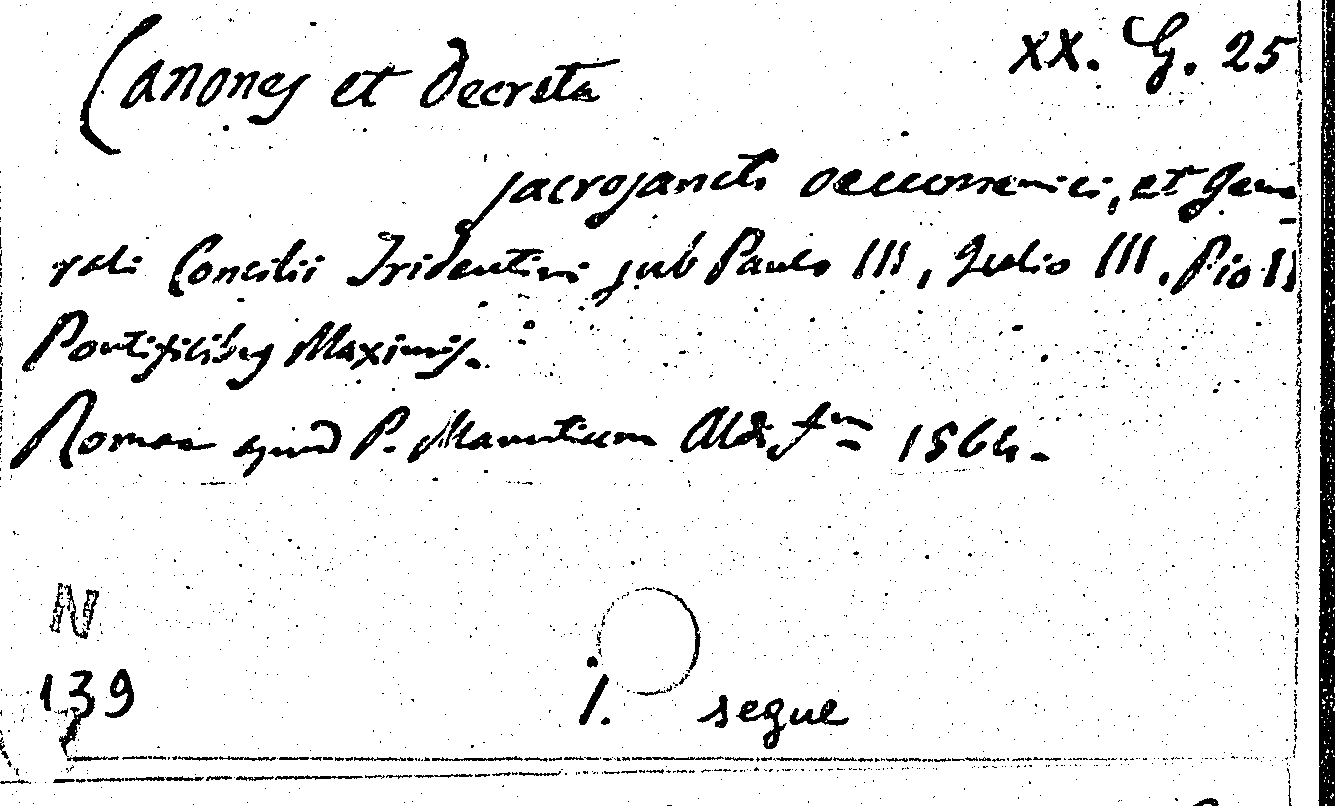 XX. G. 25
Canones et Decreta
sacrosancti oecumenici, et Gene
rali Concilii Tridentini sub Paulo III, Julio III. Pio II
Pontificibus Maximis.
Romae apud P. Manutium Aldi f. 1564.
N
139
1. segue